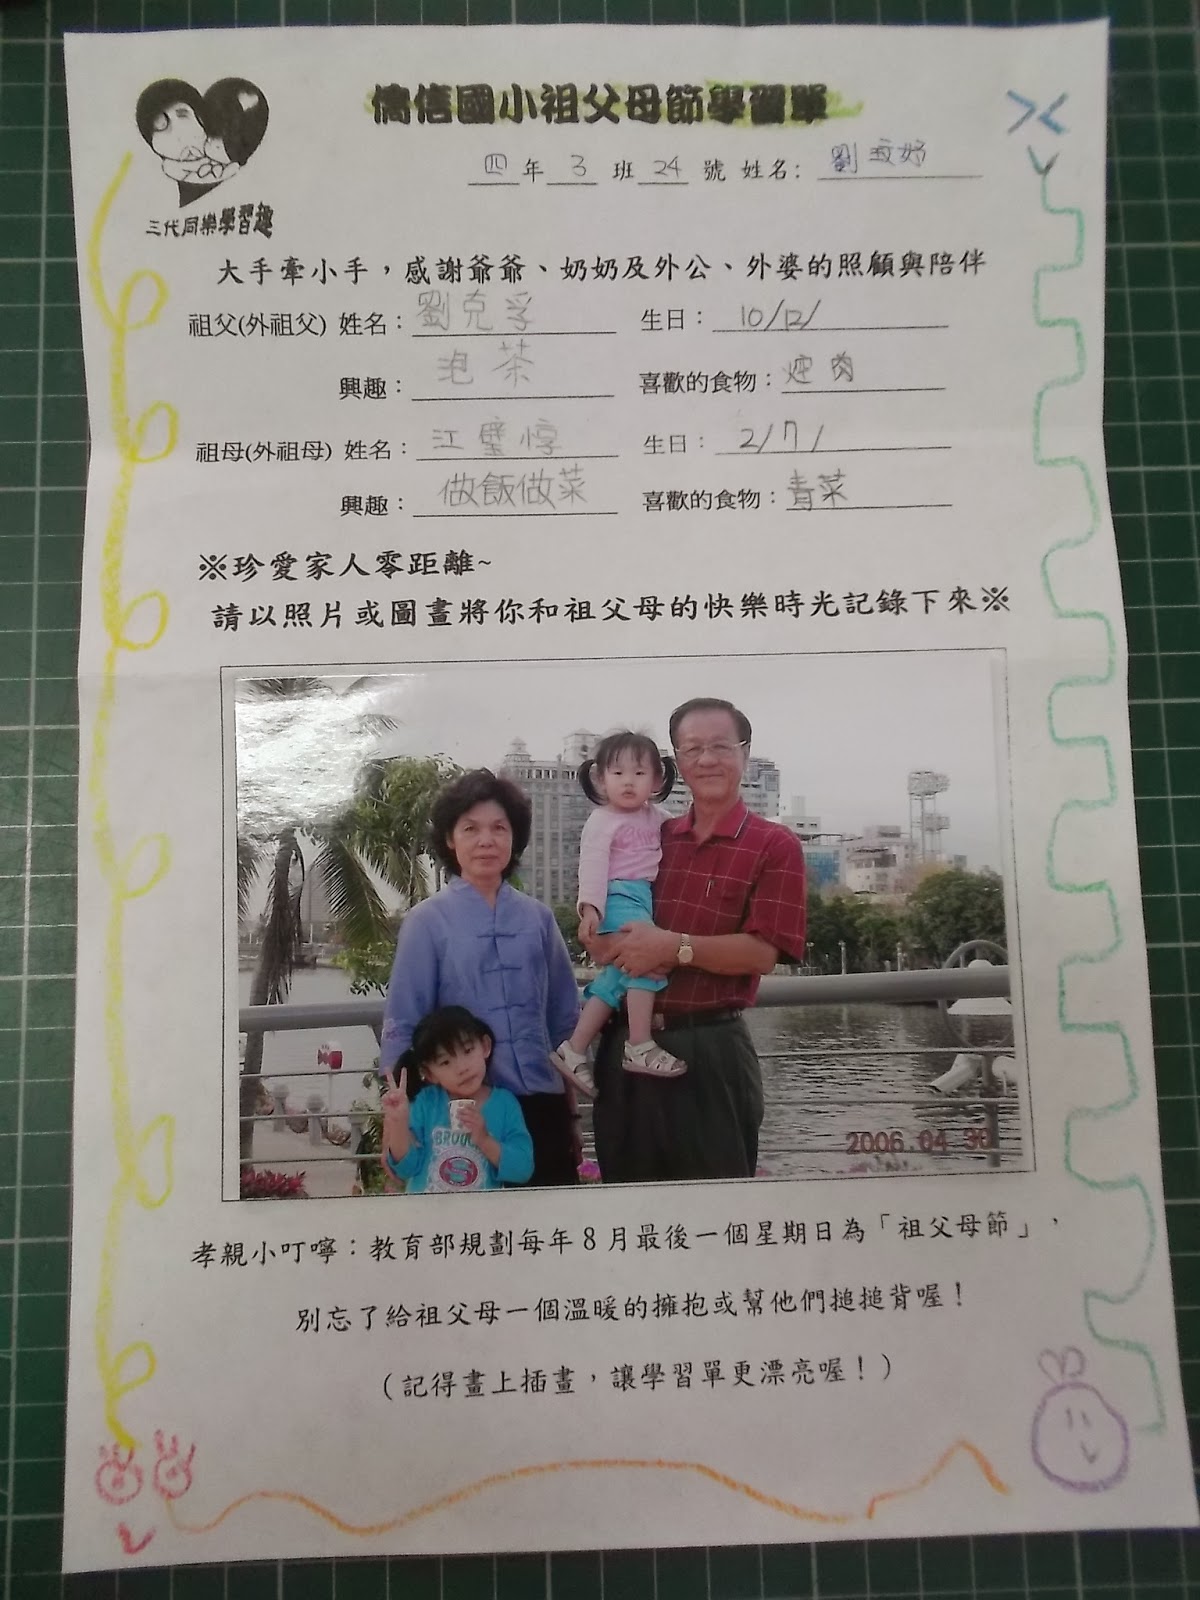 僑信國小祖父母節學習單
四年3班24號 姓名：劉玟妤
三代同樂學習趣
大手牽小手，感謝爺爺、奶奶及外公、外婆的照顧與陪伴
祖父(外祖父) 姓名：劉克孚 生日：10/12/
興趣：泡茶 喜歡的食物：焢肉
祖母(外祖母) 姓名：江璧惇 生日：2/7/
興趣：做飯做菜 喜歡的食物：青菜
※珍愛家人零距離~
請以照片或圖畫將你和祖父母的快樂時光記錄下來※
2006.04.30
孝親小叮嚀：教育部規劃每年8月最後一個星期日為「祖父母節」，
別忘了給祖父母一個溫暖的擁抱或幫他們搥搥背喔！
（記得畫上插畫，讓學習單更漂亮喔！）